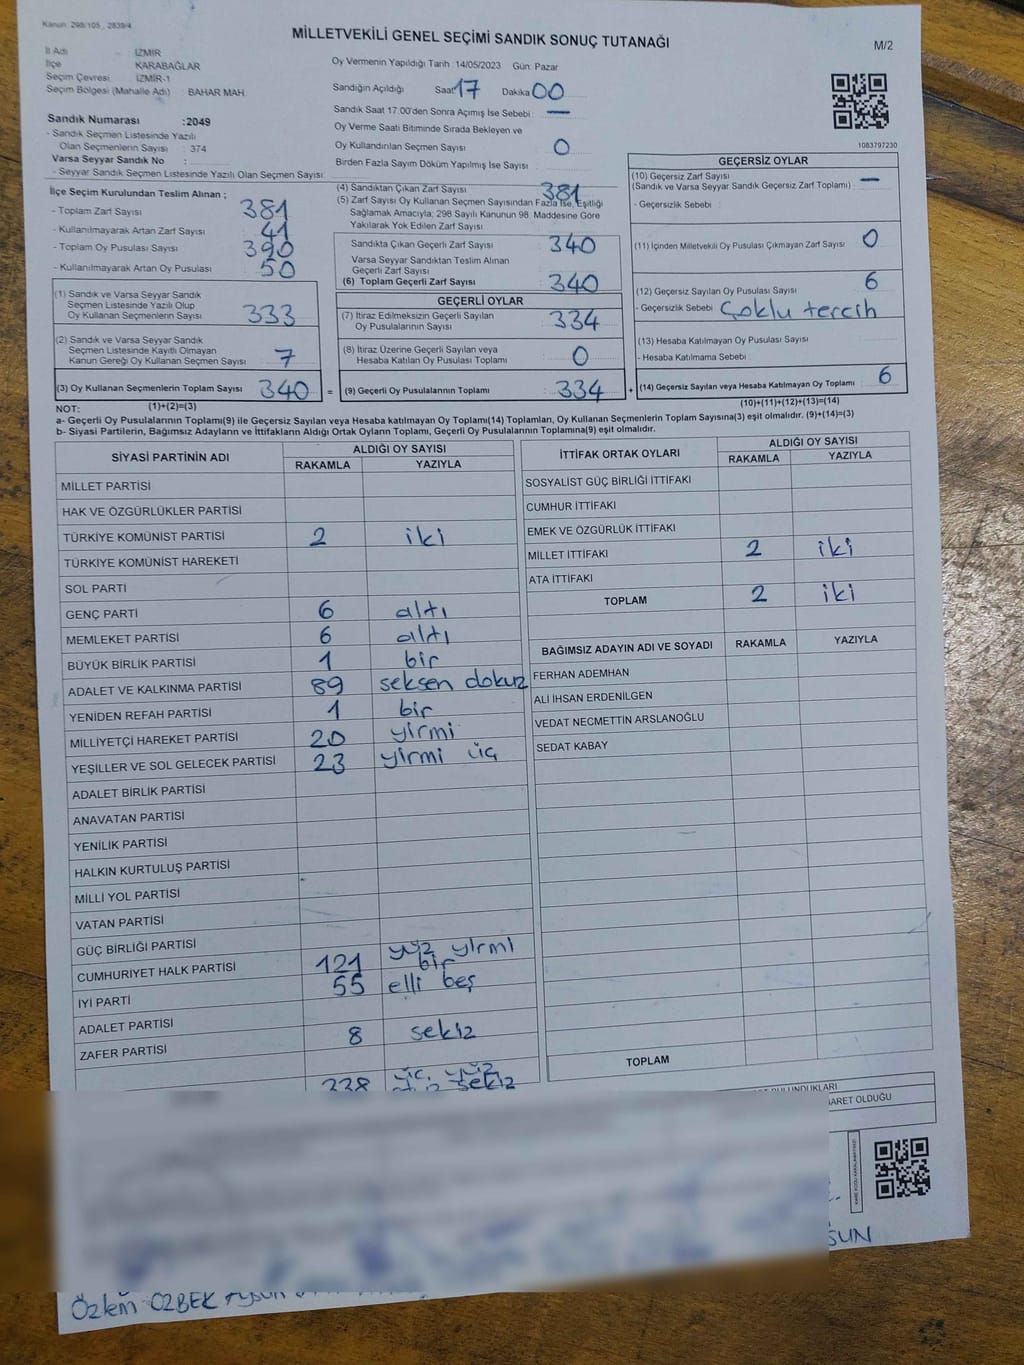 Kanun: 298/105 , 2839/4
MİLLETVEKİLİ GENEL SEÇİMİ SANDIK SONUÇ TUTANAĞI
M/2
İl Adı : İZMİR
İlçe : KARABAĞLAR
Seçim Çevresi : İZMİR-1
Seçim Bölgesi (Mahalle Adı) : BAHAR MAH.
Oy Vermenin Yapıldığı Tarih :14/05/2023 Gün: Pazar
Sandığın Açıldığı Saat: 17 Dakika 00
Sandık Saat 17:00'den Sonra Açımış İse Sebebi : —
Oy Verme Saati Bitiminde Sırada Bekleyen ve
Oy Kullandırılan Seçmen Sayısı : 0
Birden Fazla Sayım Döküm Yapılmış İse Sayısı :
Sandık Numarası :2049
- Sandık Seçmen Listesinde Yazılı
Olan Seçmenlerin Sayısı : 374
Varsa Seyyar Sandık No :
- Seyyar Sandık Seçmen Listesinde Yazılı Olan Seçmen Sayısı:
1083797230
İlçe Seçim Kurulundan Teslim Alınan ;
- Toplam Zarf Sayısı : 381
- Kullanılmayarak Artan Zarf Sayısı : 41
- Toplam Oy Pusulası Sayısı : 390
- Kullanılmayarak Artan Oy Pusulası : 50
(1) Sandık ve Varsa Seyyar Sandık
Seçmen Listesinde Yazılı Olup
Oy Kullanan Seçmenlerin Sayısı : 333
(2) Sandık ve Varsa Seyyar Sandık
Seçmen Listesinde Kayıtlı Olmayan
Kanun Gereği Oy Kullanan Seçmen Sayısı : 7
(3) Oy Kullanan Seçmenlerin Toplam Sayısı : 340 =
(4) Sandıktan Çıkan Zarf Sayısı : 381
(5) Zarf Sayısı Oy Kullanan Seçmen Sayısından Fazla İse, Eşitliği
Sağlamak Amacıyla; 298 Sayılı Kanunun 98. Maddesine Göre
Yakılarak Yok Edilen Zarf Sayısı :
Sandıkta Çıkan Geçerli Zarf Sayısı : 340
Varsa Seyyar Sandıktan Teslim Alınan
Geçerli Zarf Sayısı :
(6) Toplam Geçerli Zarf Sayısı : 340
GEÇERLİ OYLAR
(7) İtiraz Edilmeksizin Geçerli Sayılan
Oy Pusulalarının Sayısı : 334
(8) İtiraz Üzerine Geçerli Sayılan veya
Hesaba Katılan Oy Pusulası Toplamı : 0
(9) Geçerli Oy Pusulalarının Toplamı : 334 +
GEÇERSİZ OYLAR
(10) Geçersiz Zarf Sayısı
(Sandık ve Varsa Seyyar Sandık Geçersiz Zarf Toplamı) : —
- Geçersizlik Sebebi :
(11) İçinden Milletvekili Oy Pusulası Çıkmayan Zarf Sayısı : 0
(12) Geçersiz Sayılan Oy Pusulası Sayısı : 6
- Geçersizlik Sebebi : Çoklu tercih
(13) Hesaba Katılmayan Oy Pusulası Sayısı :
- Hesaba Katılmama Sebebi :
(14) Geçersiz Sayılan veya Hesaba Katılmayan Oy Toplamı : 6
NOT: (1)+(2)=(3) (10)+(11)+(12)+(13)=(14)
a- Geçerli Oy Pusulalarının Toplamı(9) ile Geçersiz Sayılan veya Hesaba katılmayan Oy Toplamı(14) Toplamları, Oy Kullanan Seçmenlerin Toplam Sayısına(3) eşit olmalıdır. (9)+(14)=(3)
b- Siyasi Partilerin, Bağımsız Adayların ve İttifakların Aldığı Ortak Oyların Toplamı, Geçerli Oy Pusulalarının Toplamına(9) eşit olmalıdır.
SİYASİ PARTİNİN ADI ALDIĞI OY SAYISI
RAKAMLA YAZIYLA
MİLLET PARTİSİ
HAK VE ÖZGÜRLÜKLER PARTİSİ
TÜRKİYE KOMÜNİST PARTİSİ 2 iki
TÜRKİYE KOMÜNİST HAREKETİ
SOL PARTİ
GENÇ PARTİ 6 altı
MEMLEKET PARTİSİ 6 altı
BÜYÜK BİRLİK PARTİSİ 1 bir
ADALET VE KALKINMA PARTİSİ 89 seksen dokuz
YENİDEN REFAH PARTİSİ 1 bir
MİLLİYETÇİ HAREKET PARTİSİ 20 yirmi
YEŞİLLER VE SOL GELECEK PARTİSİ 23 yirmi üç
ADALET BİRLİK PARTİSİ
ANAVATAN PARTİSİ
YENİLİK PARTİSİ
HALKIN KURTULUŞ PARTİSİ
MİLLİ YOL PARTİSİ
VATAN PARTİSİ
GÜÇ BİRLİĞİ PARTİSİ
CUMHURİYET HALK PARTİSİ 121 yüz yirmi bir
İYİ PARTİ 55 elli beş
ADALET PARTİSİ
ZAFER PARTİSİ 8 sekiz
İTTİFAK ORTAK OYLARI ALDIĞI OY SAYISI
RAKAMLA YAZIYLA
SOSYALİST GÜÇ BİRLİĞİ İTTİFAKI
CUMHUR İTTİFAKI
EMEK VE ÖZGÜRLÜK İTTİFAKI
MİLLET İTTİFAKI 2 iki
ATA İTTİFAKI
TOPLAM 2 iki
BAĞIMSIZ ADAYIN ADI VE SOYADI RAKAMLA YAZIYLA
FERHAN ADEMHAN
ALİ İHSAN ERDENİLGEN
VEDAT NECMETTİN ARSLANOĞLU
SEDAT KABAY
TOPLAM
OLDUĞU
Özlem ÖZBEK Aysun